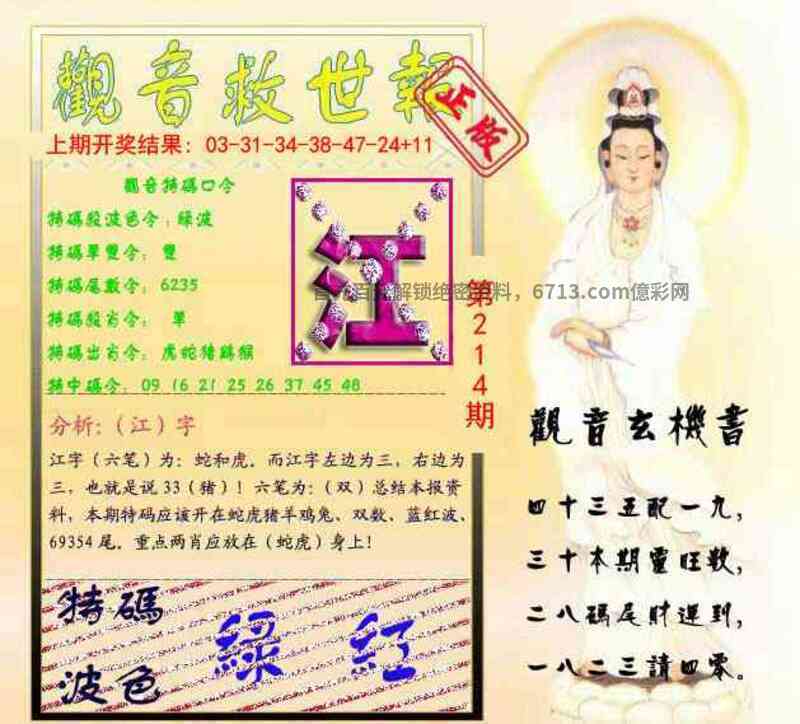 觀音救世報
正版
上期开奖结果：03-31-34-38-47-24+11
觀音特碼口令
特碼殺波色令：绿波
特碼單雙令：雙
特碼尾數令：6235
特碼殺肖令：單
特碼出肖令：虎蛇猪鷄猴
特中碼令：09 16 21 25 26 37 45 48
江
解锁绝密资料，6713.com億彩网
第214期
分析:（江）字
江字（六笔）为：蛇和虎．而江字左边为三，右边为
三，也就是说 33（猪）！六笔为：（双）总结本报资
料，本期特码应该开在蛇虎猪羊鸡兔、双数、蓝红波、
69354 尾．重点两肖应放在（蛇虎）身上！
特碼
波色
綠 紅
觀音玄機書
四十三五配一九，
三十本期靈旺数，
二八碼尾財運到，
一八二三請四零。